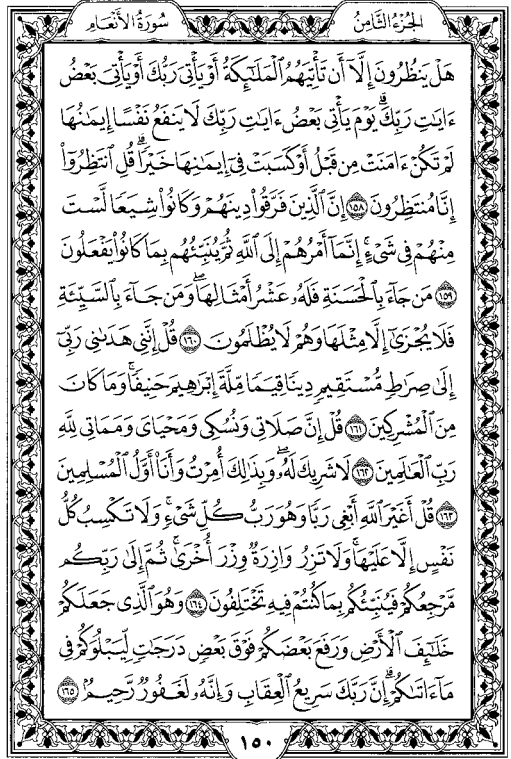 سُورَةُ الأَنْعَامِ
الجُزْءُ الثَّامِنُ
هَلْ يَنظُرُونَ إِلَّآ أَن تَأْتِيَهُمُ ٱلْمَلَٰٓئِكَةُ أَوْ يَأْتِىَ رَبُّكَ أَوْ يَأْتِىَ بَعْضُ
ءَايَٰتِ رَبِّكَ ۗ يَوْمَ يَأْتِى بَعْضُ ءَايَٰتِ رَبِّكَ لَا يَنفَعُ نَفْسًا إِيمَٰنُهَا
لَمْ تَكُنْ ءَامَنَتْ مِن قَبْلُ أَوْ كَسَبَتْ فِىٓ إِيمَٰنِهَا خَيْرًا ۗ قُلِ ٱنتَظِرُوٓا۟
إِنَّا مُنتَظِرُونَ ١٥٨ إِنَّ ٱلَّذِينَ فَرَّقُوا۟ دِينَهُمْ وَكَانُوا۟ شِيَعًا لَّسْتَ
مِنْهُمْ فِى شَىْءٍ ۚ إِنَّمَآ أَمْرُهُمْ إِلَى ٱللَّهِ ثُمَّ يُنَبِّئُهُم بِمَا كَانُوا۟ يَفْعَلُونَ
١٥٩ مَن جَآءَ بِٱلْحَسَنَةِ فَلَهُۥ عَشْرُ أَمْثَالِهَا ۖ وَمَن جَآءَ بِٱلسَّيِّئَةِ
فَلَا يُجْزَىٰٓ إِلَّا مِثْلَهَا وَهُمْ لَا يُظْلَمُونَ ١٦٠ قُلْ إِنَّنِى هَدَىٰنِى رَبِّىٓ
إِلَىٰ صِرَٰطٍ مُّسْتَقِيمٍ دِينًا قِيَمًا مِّلَّةَ إِبْرَٰهِيمَ حَنِيفًا ۚ وَمَا كَانَ
مِنَ ٱلْمُشْرِكِينَ ١٦١ قُلْ إِنَّ صَلَاتِى وَنُسُكِى وَمَحْيَاىَ وَمَمَاتِى لِلَّهِ
رَبِّ ٱلْعَٰلَمِينَ ١٦٢ لَا شَرِيكَ لَهُۥ ۖ وَبِذَٰلِكَ أُمِرْتُ وَأَنَا۠ أَوَّلُ ٱلْمُسْلِمِينَ
١٦٣ قُلْ أَغَيْرَ ٱللَّهِ أَبْغِى رَبًّا وَهُوَ رَبُّ كُلِّ شَىْءٍ ۚ وَلَا تَكْسِبُ كُلُّ
نَفْسٍ إِلَّا عَلَيْهَا ۚ وَلَا تَزِرُ وَازِرَةٌ وِزْرَ أُخْرَىٰ ۚ ثُمَّ إِلَىٰ رَبِّكُم
مَّرْجِعُكُمْ فَيُنَبِّئُكُم بِمَا كُنتُمْ فِيهِ تَخْتَلِفُونَ ١٦٤ وَهُوَ ٱلَّذِى جَعَلَكُمْ
خَلَٰٓئِفَ ٱلْأَرْضِ وَرَفَعَ بَعْضَكُمْ فَوْقَ بَعْضٍ دَرَجَٰتٍ لِّيَبْلُوَكُمْ فِى
مَآ ءَاتَىٰكُمْ ۗ إِنَّ رَبَّكَ سَرِيعُ ٱلْعِقَابِ وَإِنَّهُۥ لَغَفُورٌ رَّحِيمٌۢ ١٦٥
١٥٠